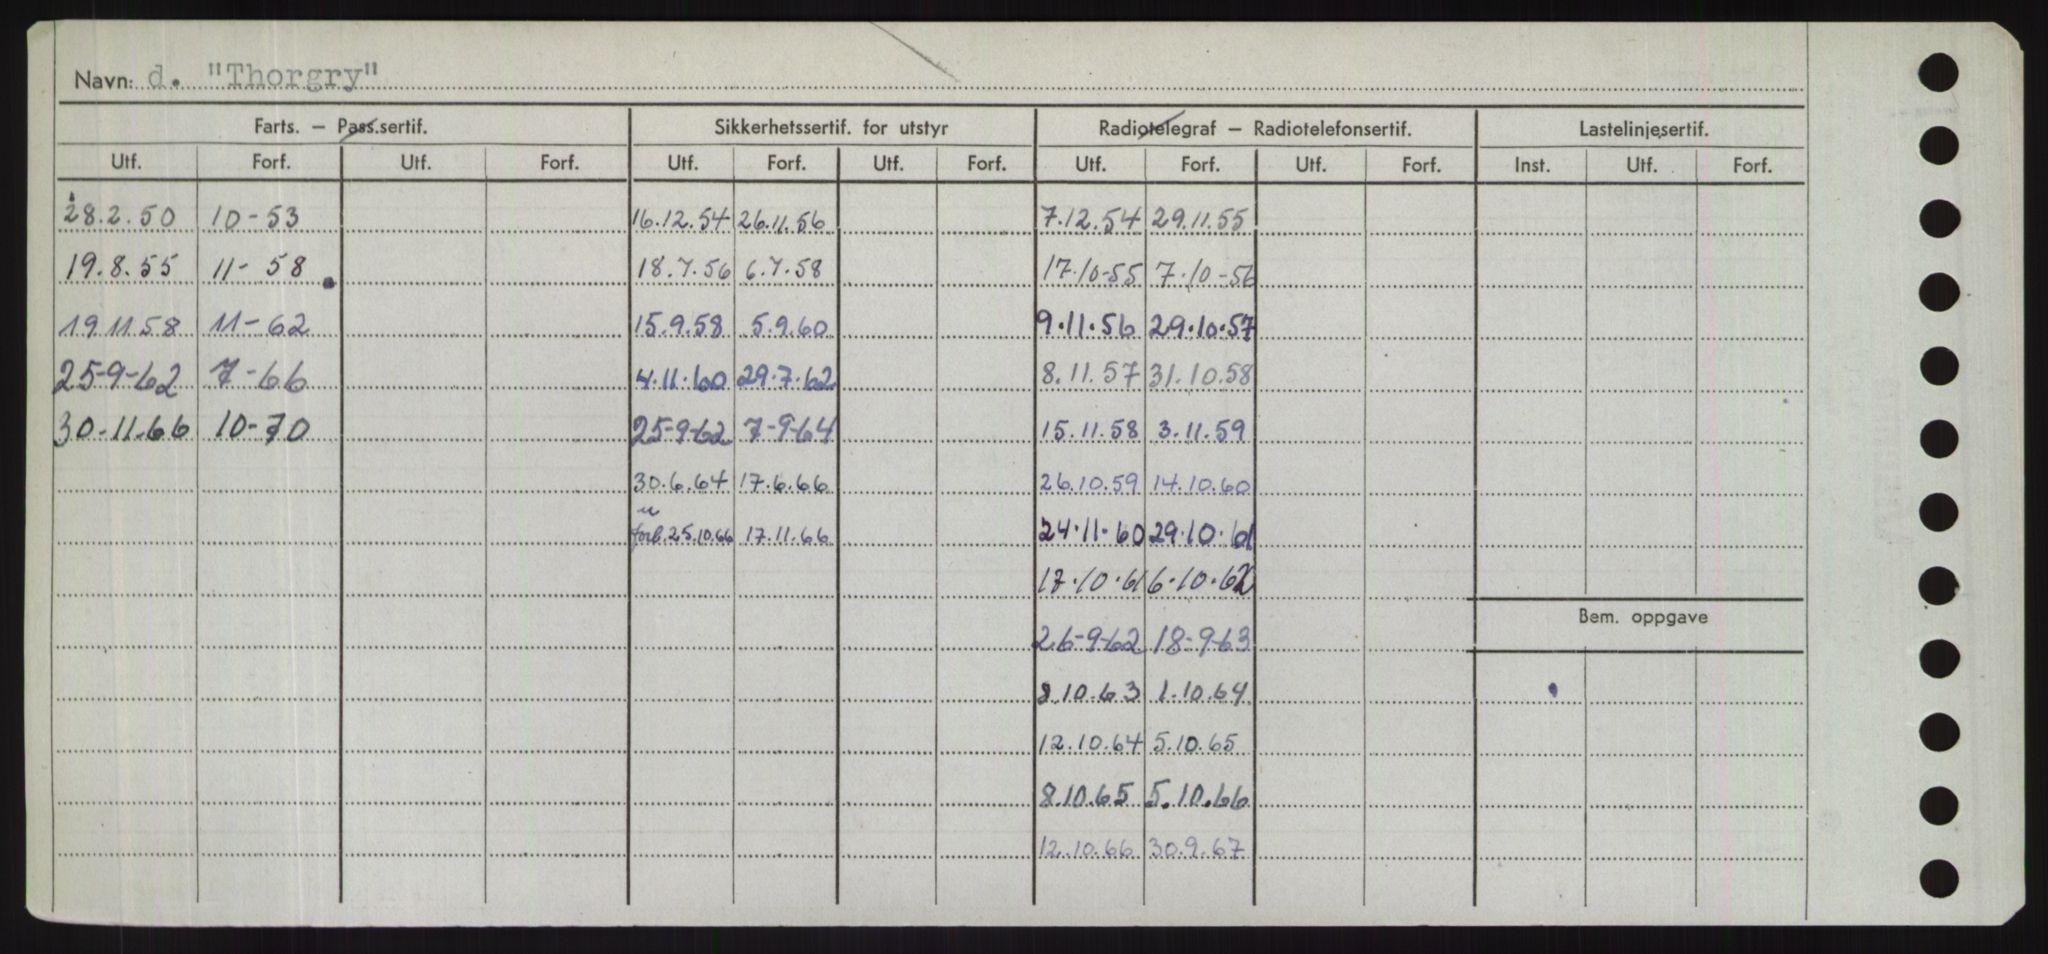 Navn: d. "Thorgry"
Farts. – Pass.sertif. Sikkerhetssertif. for utstyr Radiotelegraf – Radiotelefonsertif. Lastelinjesertif.
Utf. Forf. Utf. Forf. Utf. Forf. Utf. Forf. Utf. Forf. Utf. Forf. Inst. Utf. Forf.
28.2.50 10-53 16.12.54 26.11.56 7.12.54 29.11.55
19.8.55 11-58 18.7.56 6.7.58 17.10-55 7.10-56
19.11.58 11-62 15.9.58 5.9.60 9.11.56 29.10.57
25-9-62 7-66 4.11.60 29.7.62 8.11.57 31.10.58
30.11.66 10-70 25-9-62 7-9-64 15.11.58 3.11.59
30.6.64 17.6.66 26.10.59 14.10.60
forl. 25.10.66 17.11.66 24.11-60 29.10.61
17.10.61 6.10.62
Bem. oppgave
26-9-62 18-9-63
8.10.63 1.10.64
12.10.64 5.10.65
8.10.65 5.10.66
12.10.66 30.9.67